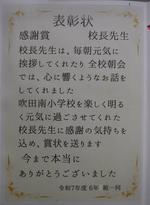 表彰状
感謝賞　校長先生
校長先生は、毎朝元気に
挨拶してくれたり全校朝会
では、心に響くようなお話を
してくれました
吹田南小学校を楽しく明る
く元気に過ごさせてくれた
校長先生に感謝の気持ち
を込め、賞状を送ります
今まで本当に
ありがとうございました
令和7年度 6年 一同